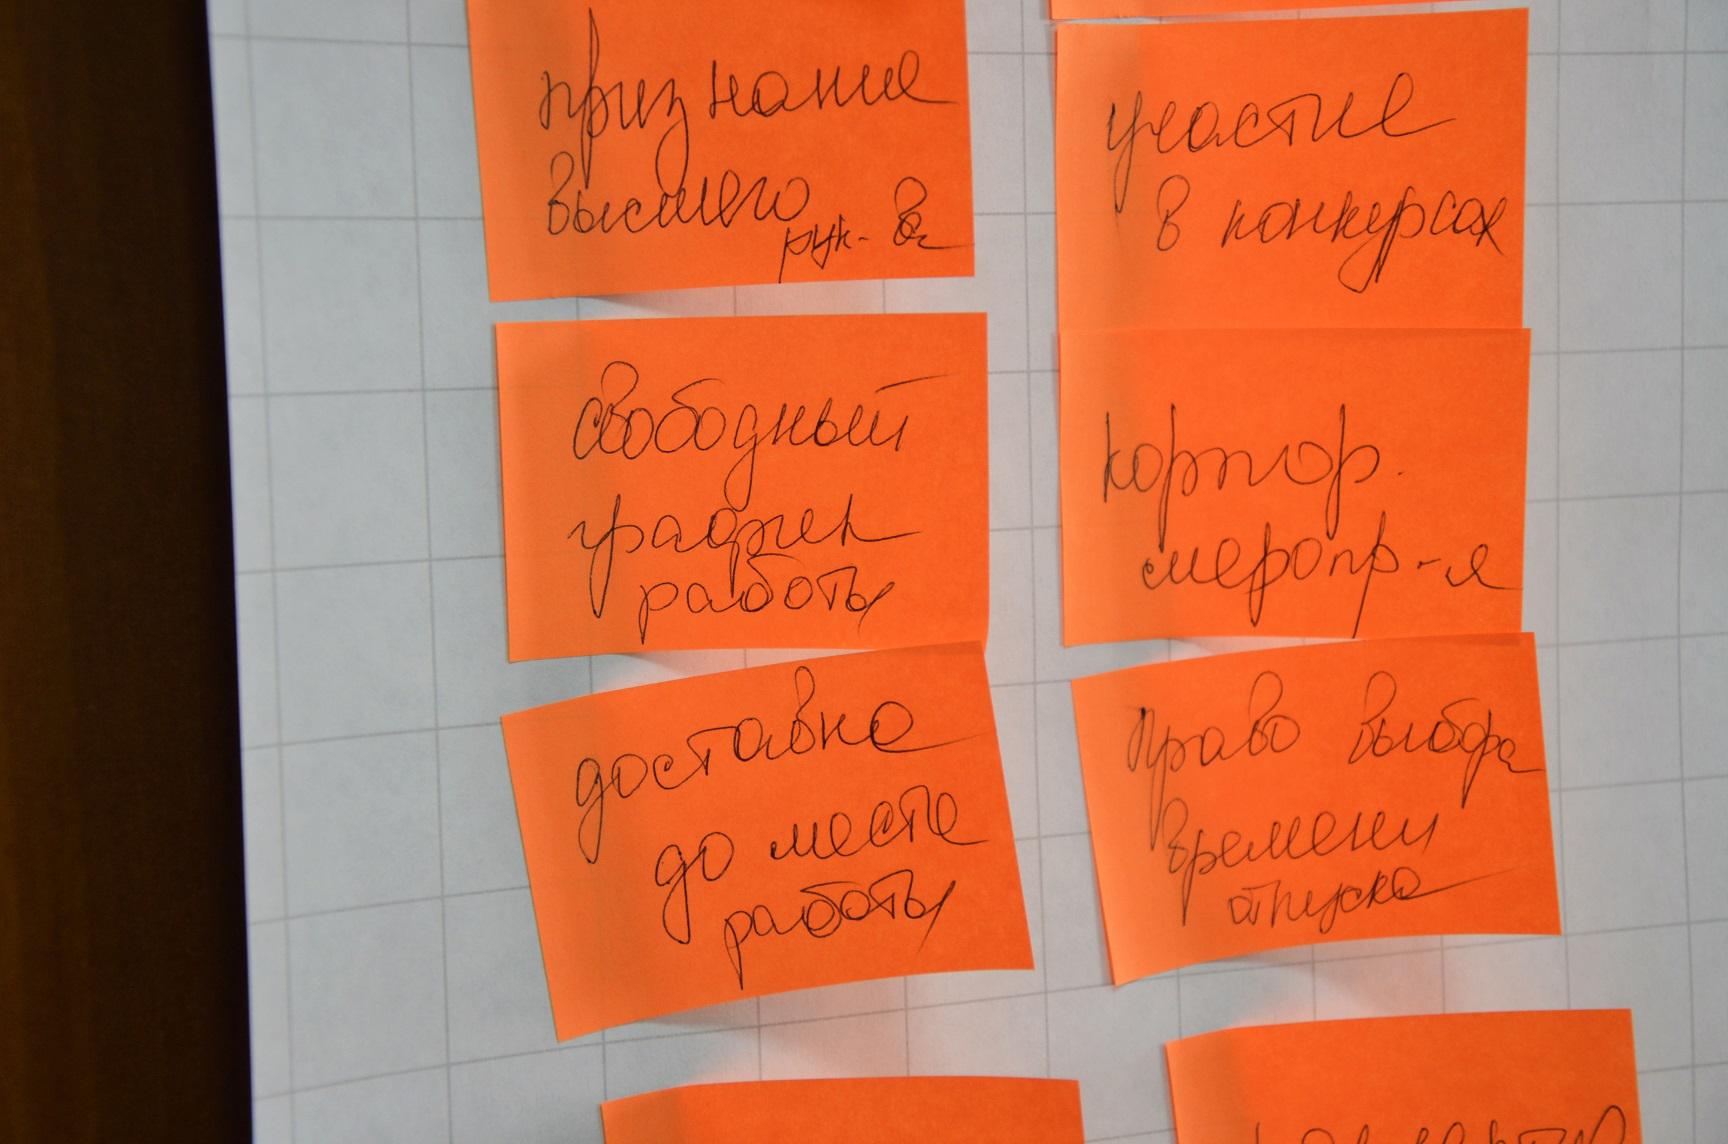 признание
высшего
рук-ва
участие
в конкурсах
свободный
график
работы
корпор.
меропр-я
доставка
до места
работы
право выбора
времени
отпуска